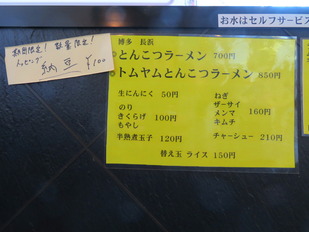 お水はセルフサービス
数量限定! 数量限定!
トッピング
納豆 ¥100
博多 長浜
とんこつラーメン 700円
トムヤムとんこつラーメン 850円
生にんにく 50円
のり
きくらげ 100円
もやし
半熟煮玉子 120円
ねぎ
ザーサイ
メンマ 160円
キムチ
チャーシュー 210円
替え玉 ライス 150円